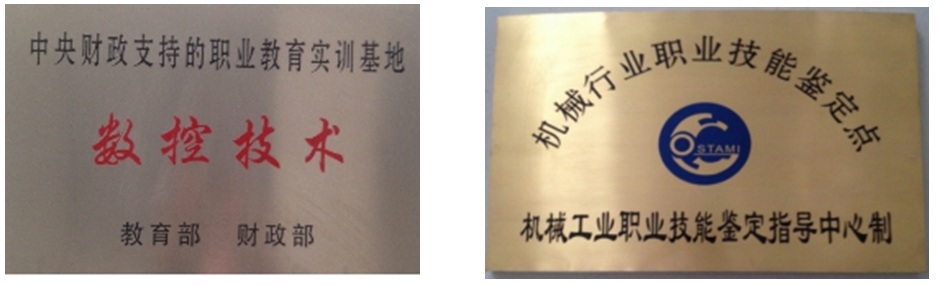 中央财政支持的职业教育实训基地
数控技术
教育部 财政部
机械行业职业技能鉴定点
OSTAMI
机械工业职业技能鉴定指导中心制